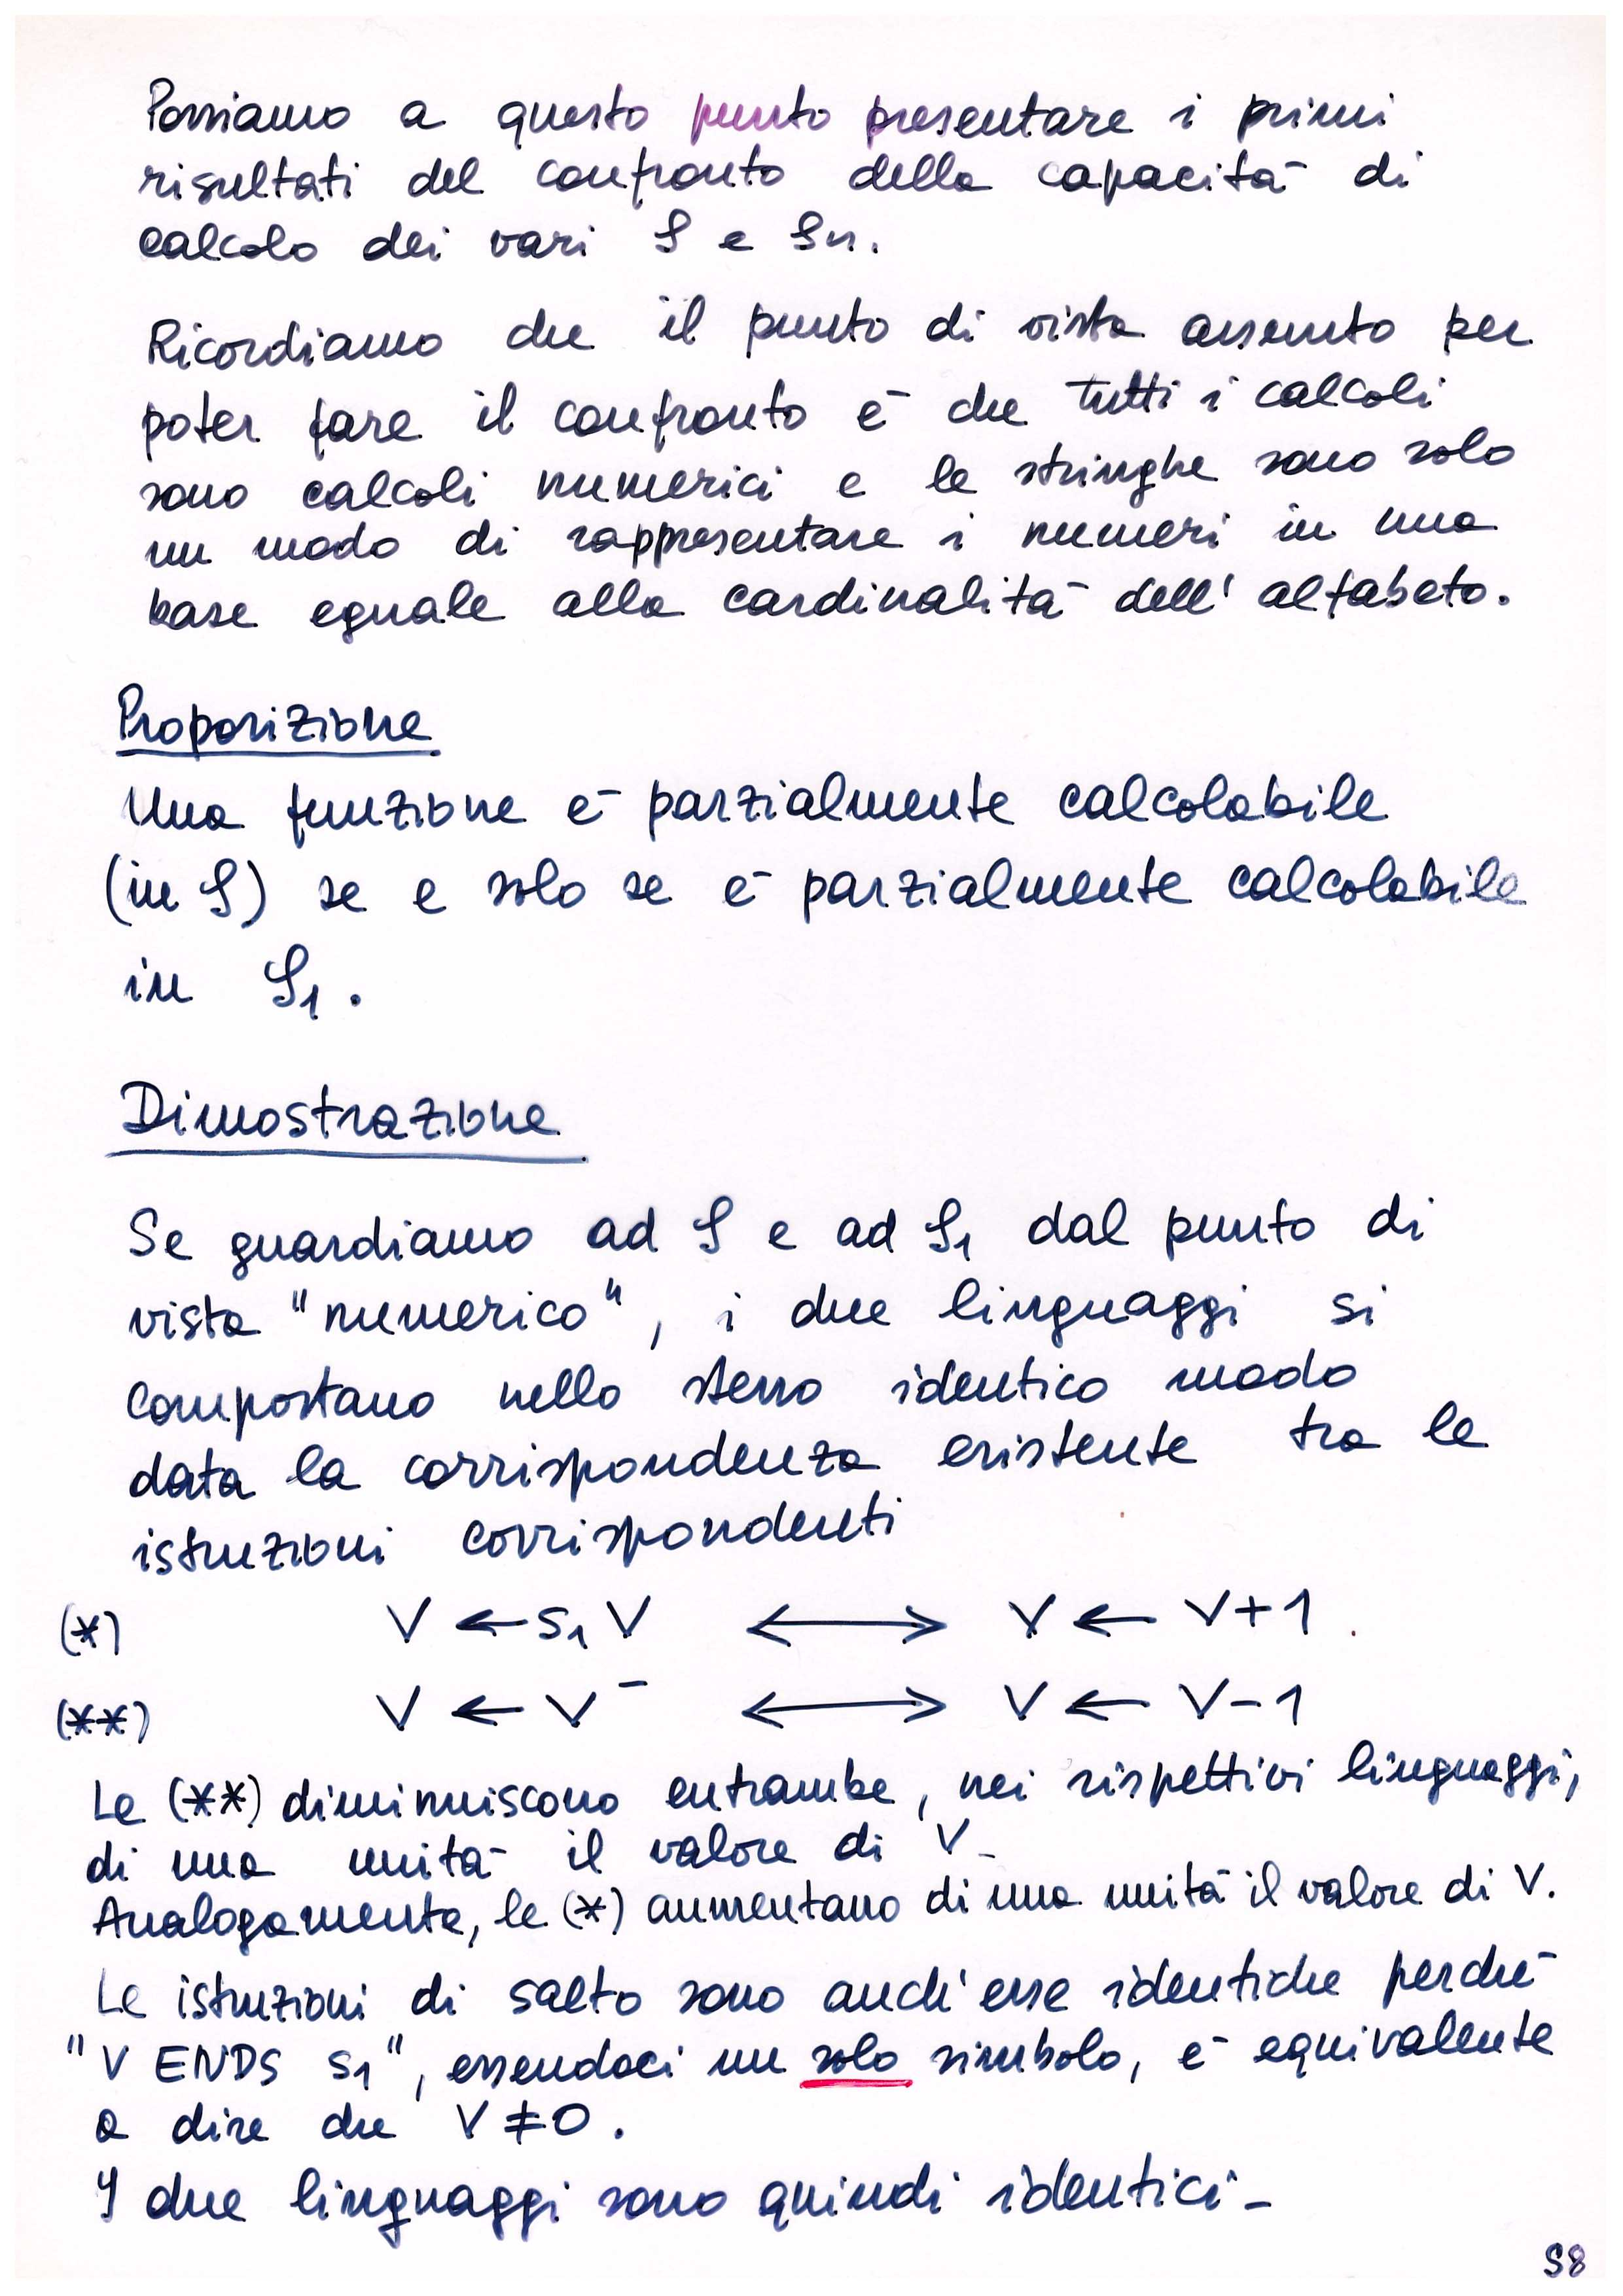 Possiamo a questo punto presentare i primi
risultati del confronto della capacità di
calcolo dei vari S e Sn.
Ricordiamo che il punto di vista assunto per
poter fare il confronto è che tutti i calcoli
sono calcoli numerici e le stringhe sono solo
un modo di rappresentare i numeri in una
base eguale alla cardinalità dell' alfabeto.
Proposizione
Una funzione è parzialmente calcolabile
(in S) se e solo se è parzialmente calcolabile
in S₁.
Dimostrazione
Se guardiamo ad S e ad S₁ dal punto di
vista "numerico", i due linguaggi si
comportano nello stesso identico modo
data la corrispondenza esistente tra le
istruzioni corrispondenti
(*) V ← s₁ V ⟷ V ← V+1.
(**) V ← V⁻ ⟷ V ← V-1
Le (**) diminuiscono entrambe, nei rispettivi linguaggi,
di una unità il valore di V_
Analogamente, le (*) aumentano di una unità il valore di V.
Le istruzioni di salto sono anch'esse identiche perché
"V ENDS s₁", essendoci un solo simbolo, è equivalente
a dire che V≠0.
I due linguaggi sono quindi identici_
S8